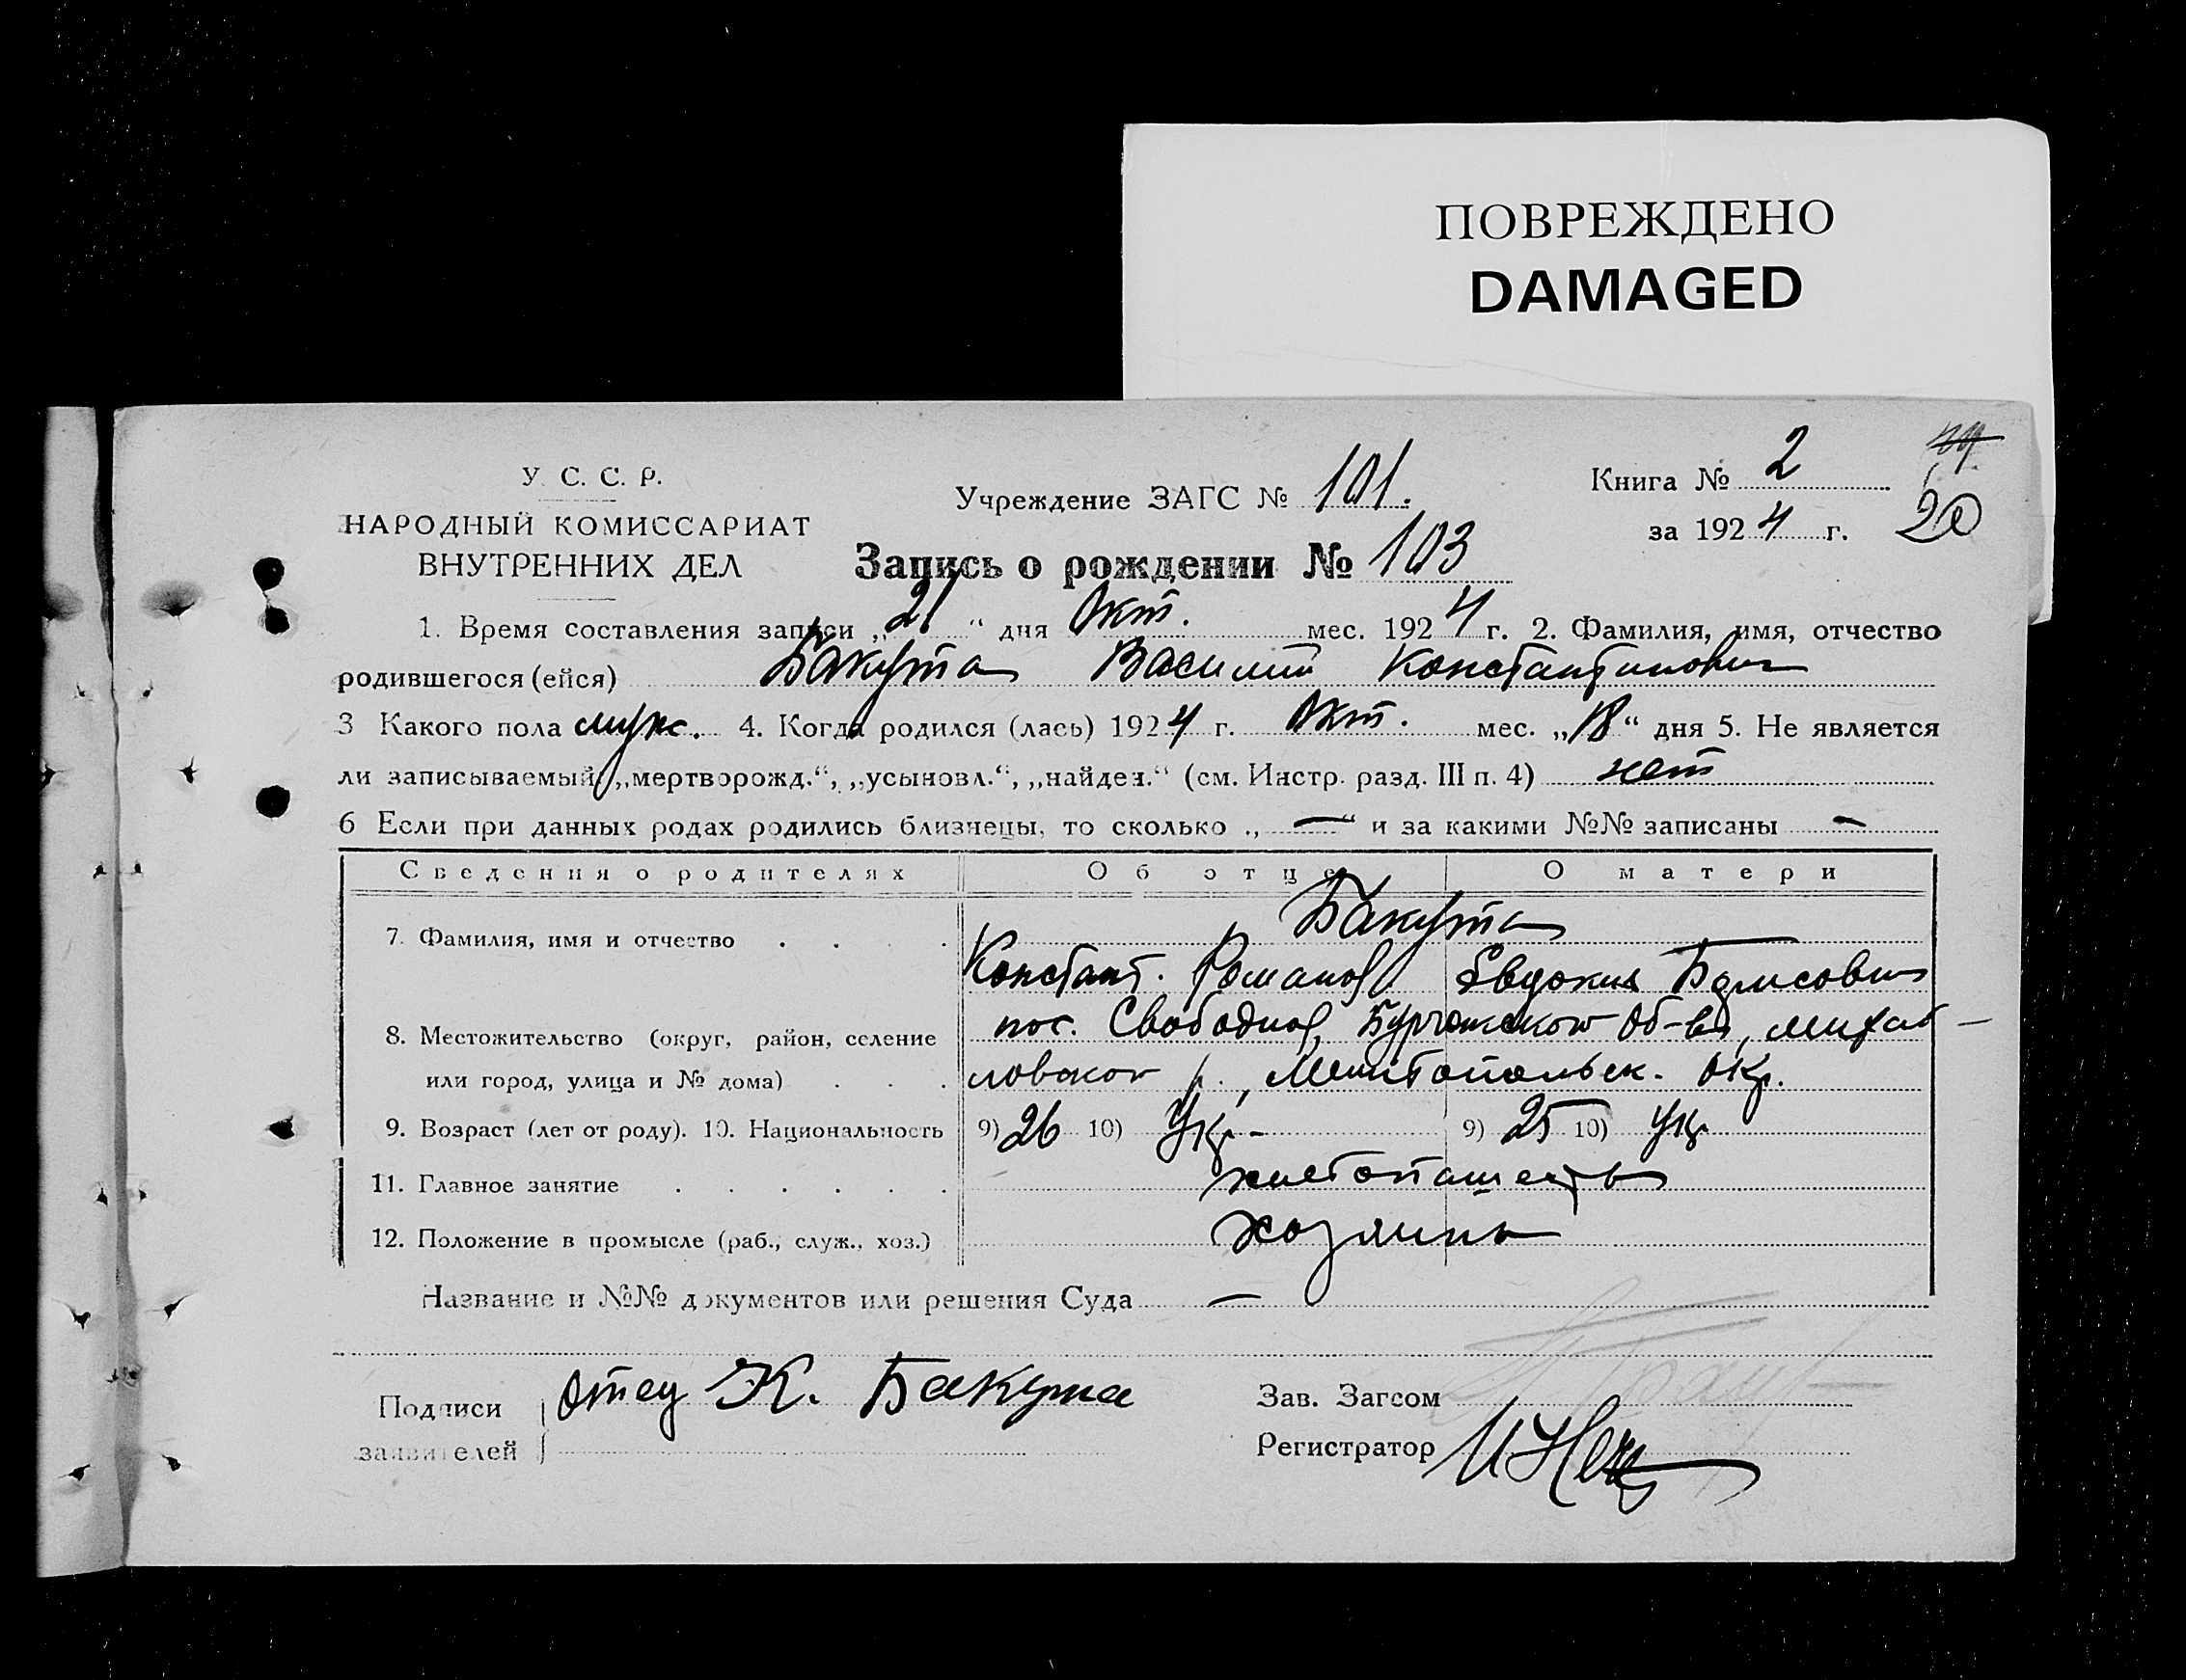 ПОВРЕЖДЕНО
DAMAGED
У. С. С. Р.
НАРОДНЫЙ КОМИССАРИАТ
ВНУТРЕННИХ ДЕЛ
Учреждение ЗАГС № 101.
Книга № 2
за 1924 г.
20
Запись о рождении № 103
1. Время составления записи „21“ дня Окт. мес. 1924 г. 2. Фамилия, имя, отчество
родившегося (ейся) Бакута Василий Константинович
3 Какого пола муж. 4. Когда родился (лась) 1924 г. Окт. мес. „18“ дня 5. Не является
ли записываемый „мертворожд.“, „усыновл.“, „найден.“ (см. Инстр. разд. III п. 4) нет
6 Если при данных родах родились близнецы, то сколько „—“ и за какими №№ записаны —
Сведения о родителях Об отце О матери
7. Фамилия, имя и отчество Бакута
Констант. Романов Евдокия Борисовна
8. Местожительство (округ, район, селение
или город, улица и № дома)
пос. Свободное, об-ва, Михай-
ловского р., Мелитопольск. окр.
9. Возраст (лет от роду). 10. Национальность 9) 26 10) Укр. 9) 25 10) Укр
11. Главное занятие хлебопашество
12. Положение в промысле (раб., служ., хоз.) хозяинъ
Название и №№ документов или решения Суда —
Подписи
заявителей
отец К. Бакута
Зав. Загсом
Регистратор